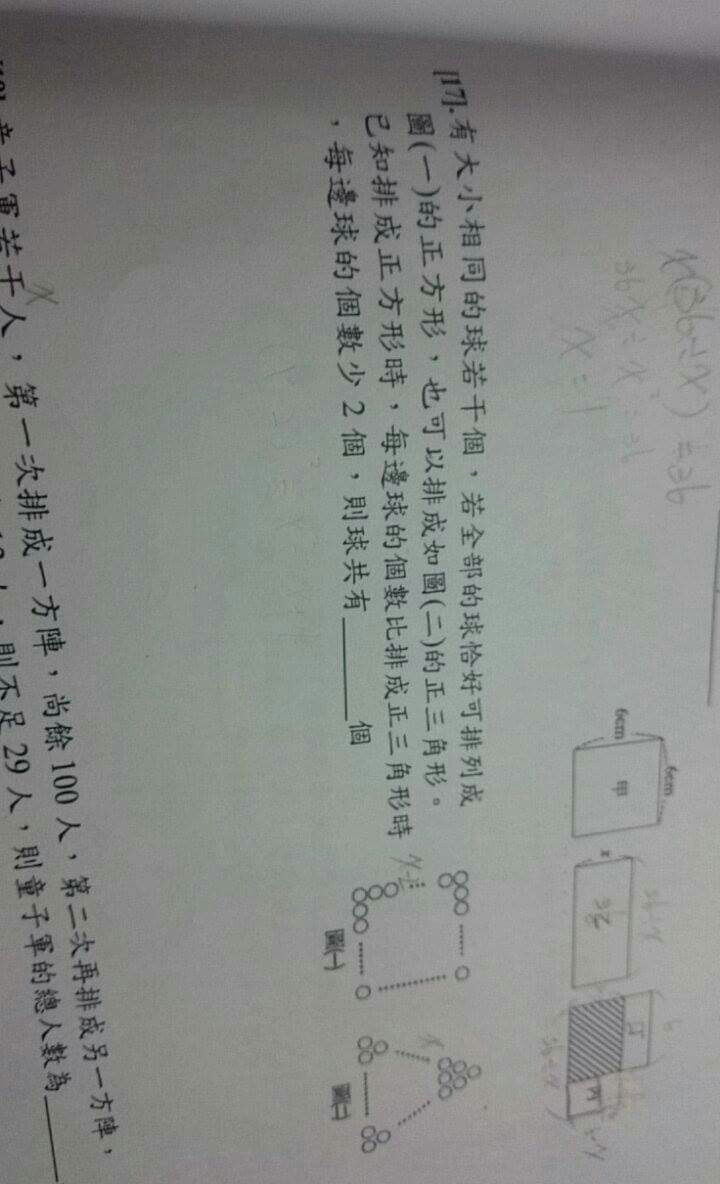 x(36÷x) = 36
36x÷x²=36
x=1
6cm
6cm
甲
x
乙
丁
丙
[17]. 有大小相同的球若干個，若全部的球恰好可排列成
圖(一)的正方形，也可以排成如圖(二)的正三角形。
已知排成正方形時，每邊球的個數比排成正三角形時
，每邊球的個數少2個，則球共有______個
x-2
圖(一)
x
圖㈡
童子軍若干人，第一次排成一方陣，尚餘100人，第二次再排成另一方陣，
x
人，則不足29人，則童子軍的總人數為______